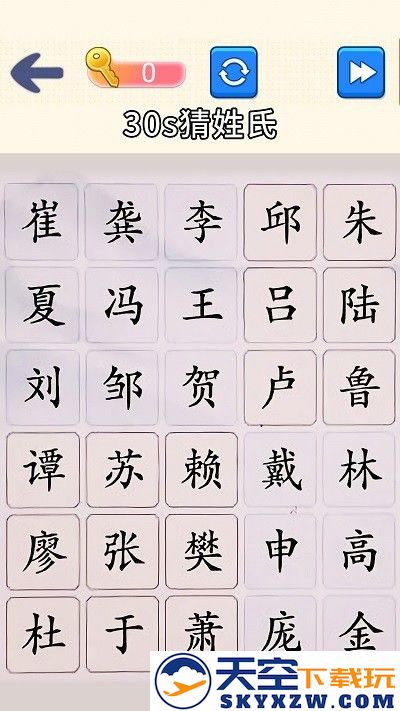 0
30s猜姓氏
崔 龚 李 邱 朱
夏 冯 王 吕 陆
刘 邹 贺 卢 鲁
谭 苏 赖 戴 林
廖 张 樊 申 高
杜 于 萧 庞 金
天空下载玩
SKYXZW.COM